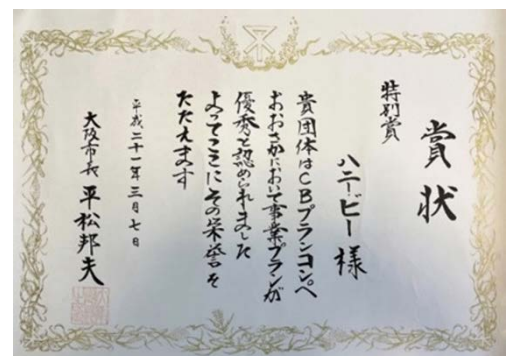 賞状
特別賞
ハニービー様
貴団体はCBプランコンペ
おおさかにおいて事業プランが
優秀と認められました
よってここにその栄誉を
たたえます
平成二十一年三月七日
大阪市長 平松邦夫